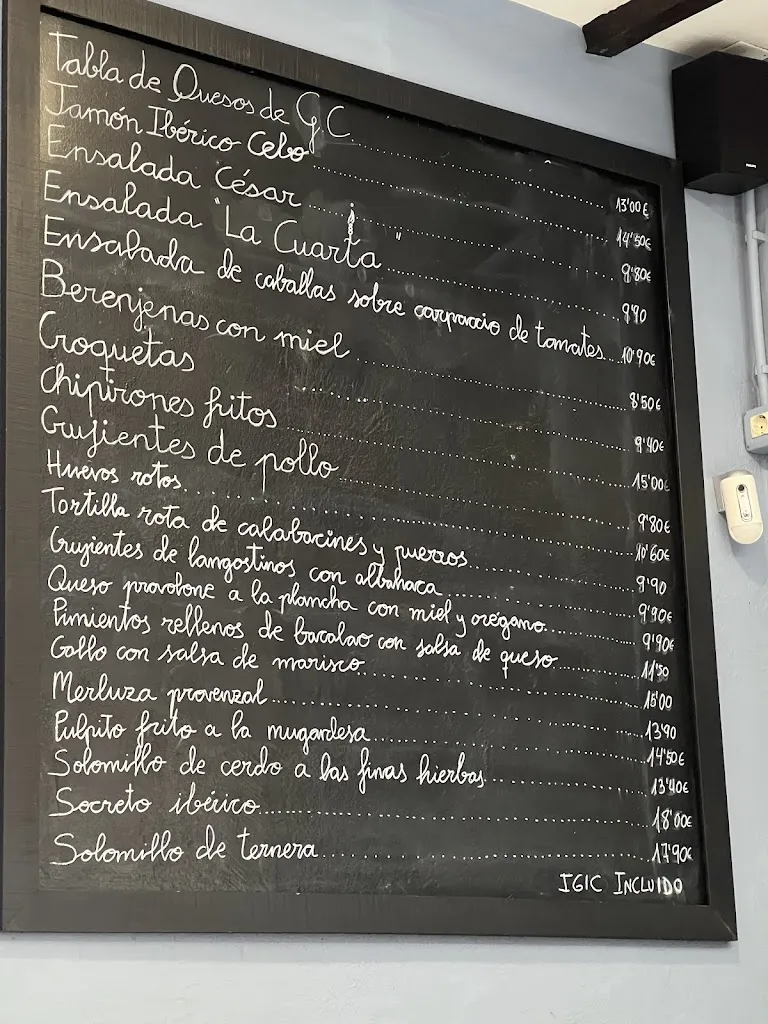 Tabla de Quesos de G.C. 13'00€
Jamón Ibérico Cebo 14'50€
Ensalada César 9'80€
Ensalada "La Cuarta" 9'90
Ensalada de caballas sobre carpaccio de tomates 10'90€
Berenjenas con miel 8'50€
Croquetas 9'40€
Chipirones fritos 15'00€
Crujientes de pollo 9'80€
Huevos rotos 10'60€
Tortilla rota de calabacines y puerros 9'90
Crujientes de langostinos con albahaca 9'90€
Queso provolone a la plancha con miel y orégano 9'90€
Pimientos rellenos de bacalao con salsa de queso 11'50
Gallo con salsa de marisco 15'00
Merluza provenzal 13'90
Pulpito frito a la mugardesa 14'50€
Solomillo de cerdo a las finas hierbas 13'40€
Secreto ibérico 18'00€
Solomillo de ternera 17'90€
IGIC INCLUIDO